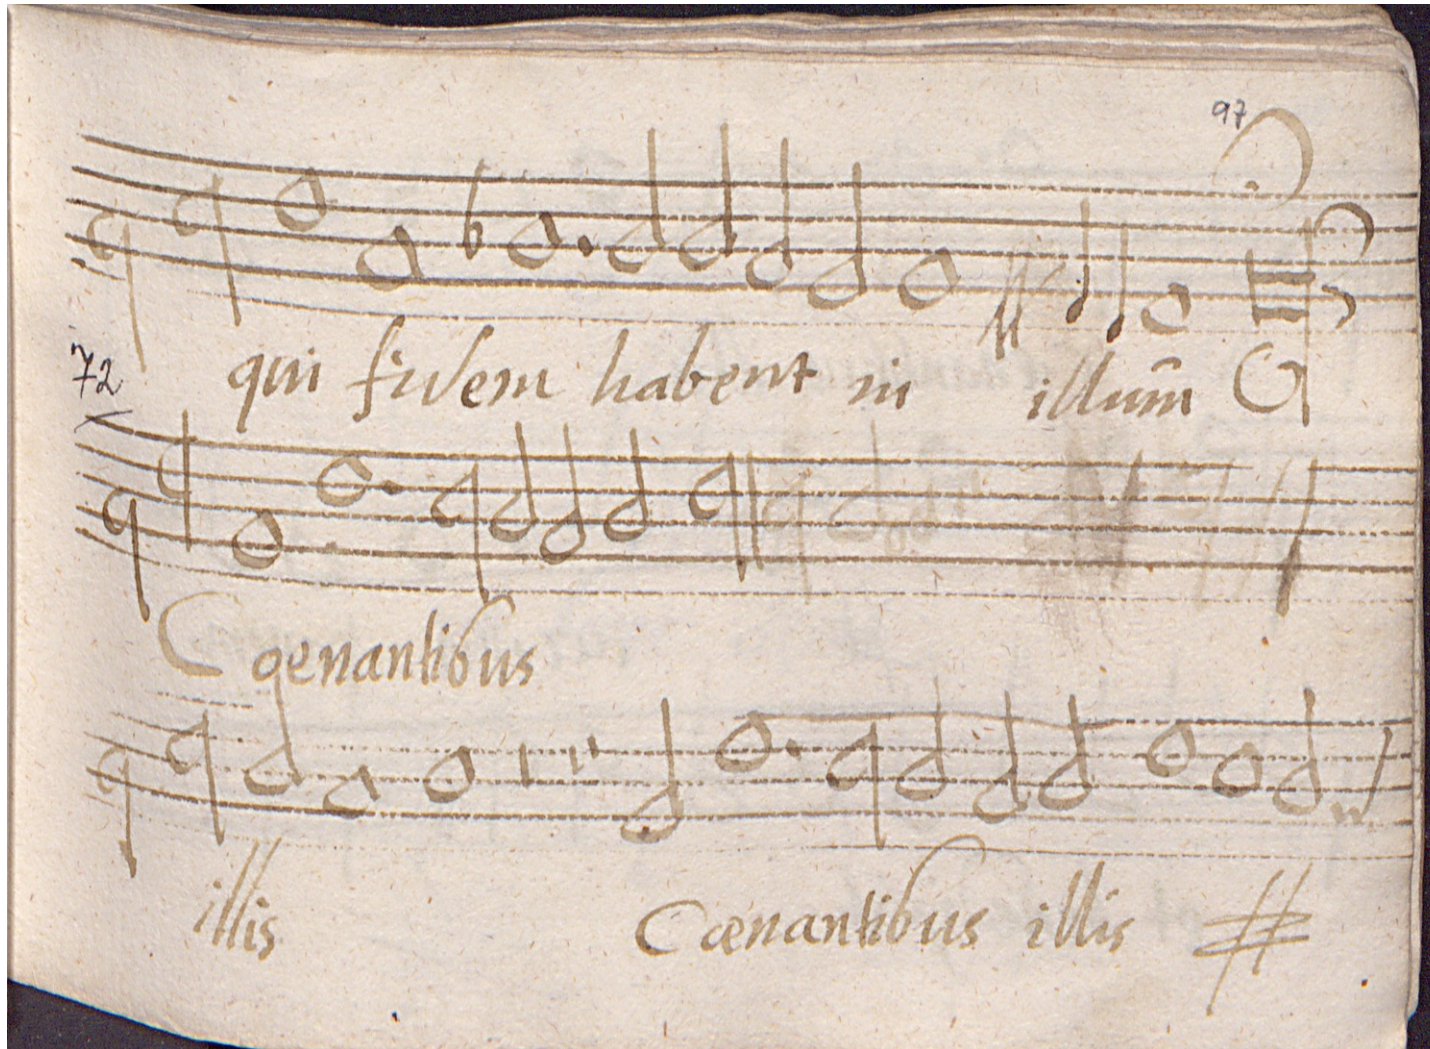 97
qui fidem habent in illum
72
Coenantibus
illis Coenantibus illis